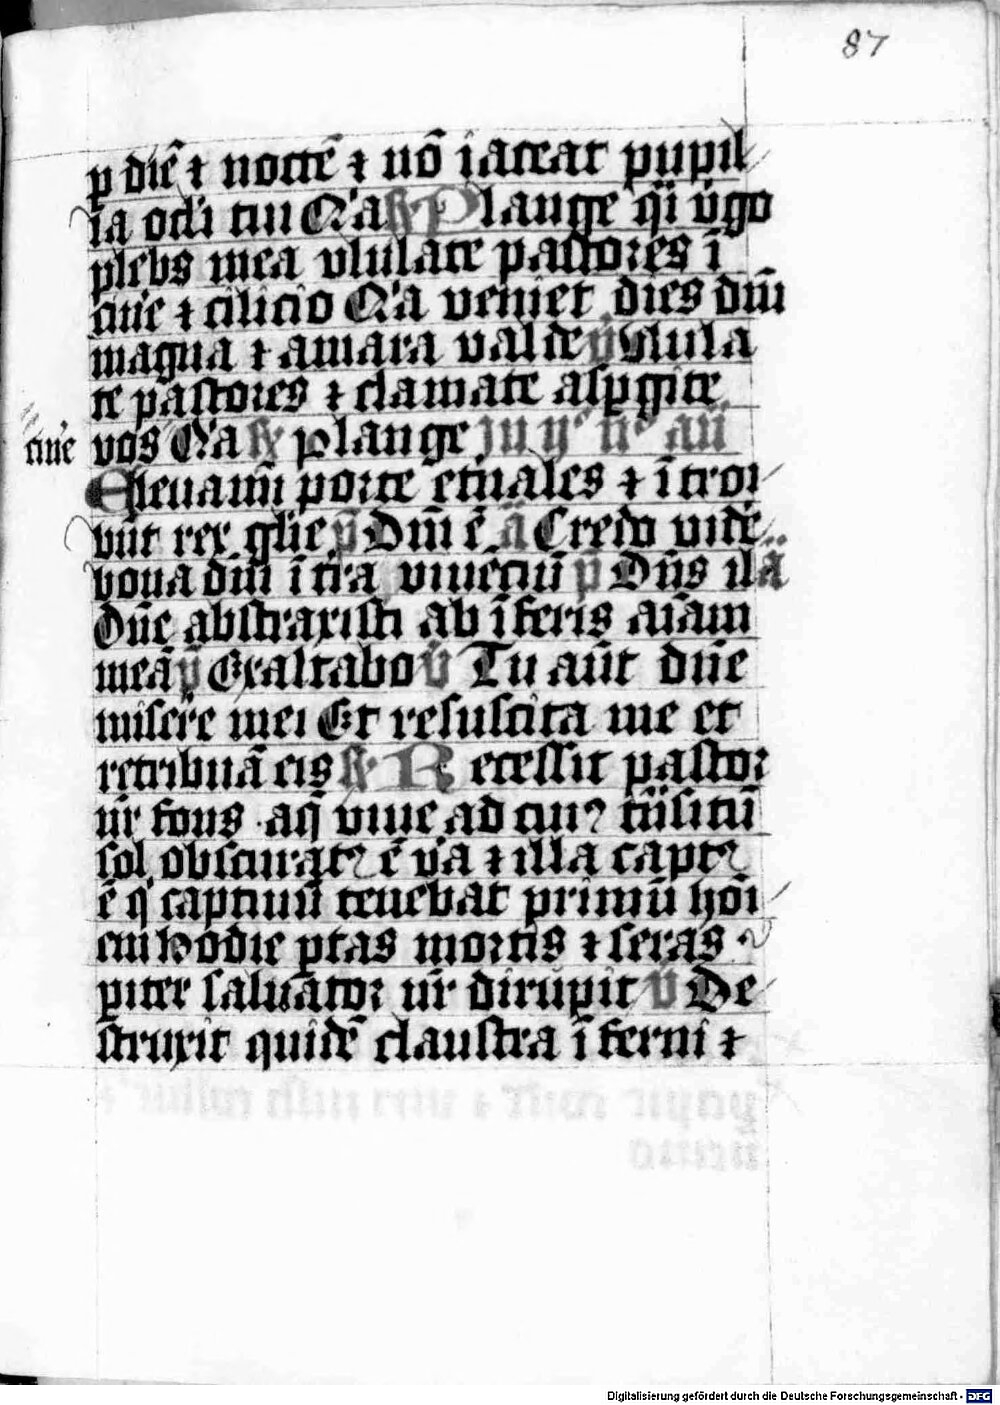 87
ꝑ diē ⁊ noctē ⁊ nō iaceat pupil
la oc̄li tui Q'a ꝶ Plange q̄i v̓go
plebs mea vlulate pastores ī
cin̓e ⁊ cilicio Q'a veniet dies dn̄i
magna ⁊ amara valde v̄ Vlula
te pastores ⁊ clamate aspgite
cin̓e vos Q'a ꝶ plange Jn ij° n° an̄
Eleuamī porte et̓nales ⁊ ītroi
būt rex gl̄ie p̄ Dn̄i ē ā Credo vid̓e
bona dn̄i ī tr̄a viuenciū p̄ Dn̄s il ā
Dn̄e abstraxisti ab īferis aīam
meā p̄ Exaltabo v̄ Tu aūt dn̄e
miser̓e mei Et resuscita me et
retribuā eis ꝶ Recessit pastor
nr̄ fons aq̄ viue ad cuiꝰ trāsitū
sol obscurat̓ ē Na ⁊ illa capt̓
ē q' captiuū tenebat primū hoī
em hodie ptas mortis ⁊ seras
piter saluator nr̄ dirupit v̄ De
struxit quidē claustra īferni ⁊
Digitalisierung gefördert durch die Deutsche Forschungsgemeinschaft - DFG